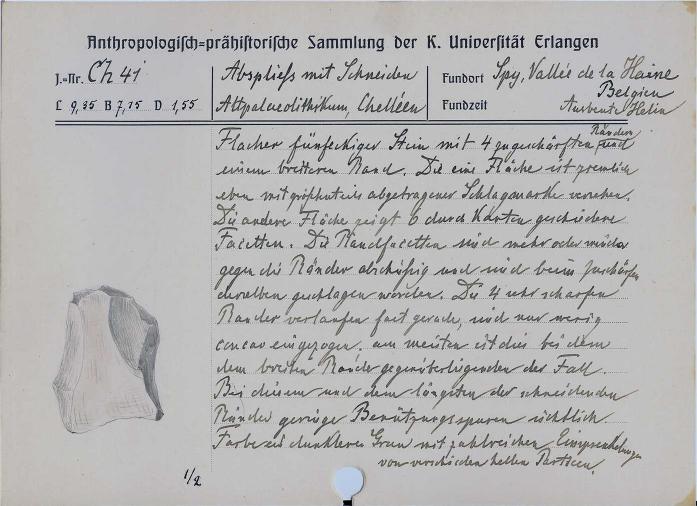 Anthropologisch=prähistorische Sammlung der K. Universität Erlangen
J.=Nr. Ch 41
L 9,35 B 7,15 D 1,55
Abspliess mit Schneiden
Altpalaeolithikum, Chelléen
Fundort Spy, Vallée de la Haine
Belgien
Fundzeit Ausbeute Helin
Flacher fünfeckiger Stein mit 4 zugeschärften Rändern und
einem breiteren Rand. Die eine Fläche ist ziemlich
eben mit größtenteils abgetragener Schlagmarke versehen.
Die andere Fläche zeigt 6 durch Kanten geschiedene
Facetten. Die Randfacetten sind mehr oder minder
gegen die Ränder abschüssig und sind beim Zuschärfen
derselben geschlagen worden. Die 4 sehr scharfen
Ränder verlaufen fast gerade, sind nur wenig
concav eingezogen. am meisten ist dies bei dem
dem breiten Rande gegenüberliegenden der Fall.
Bei diesem und dem längsten der schneidenden
Ränder geringe Benützungsspuren sichtlich.
Farbe ein dunkleres Grau mit zahlreichen Einsprenkelungen
von verschieden hellen Partieen.
1/2